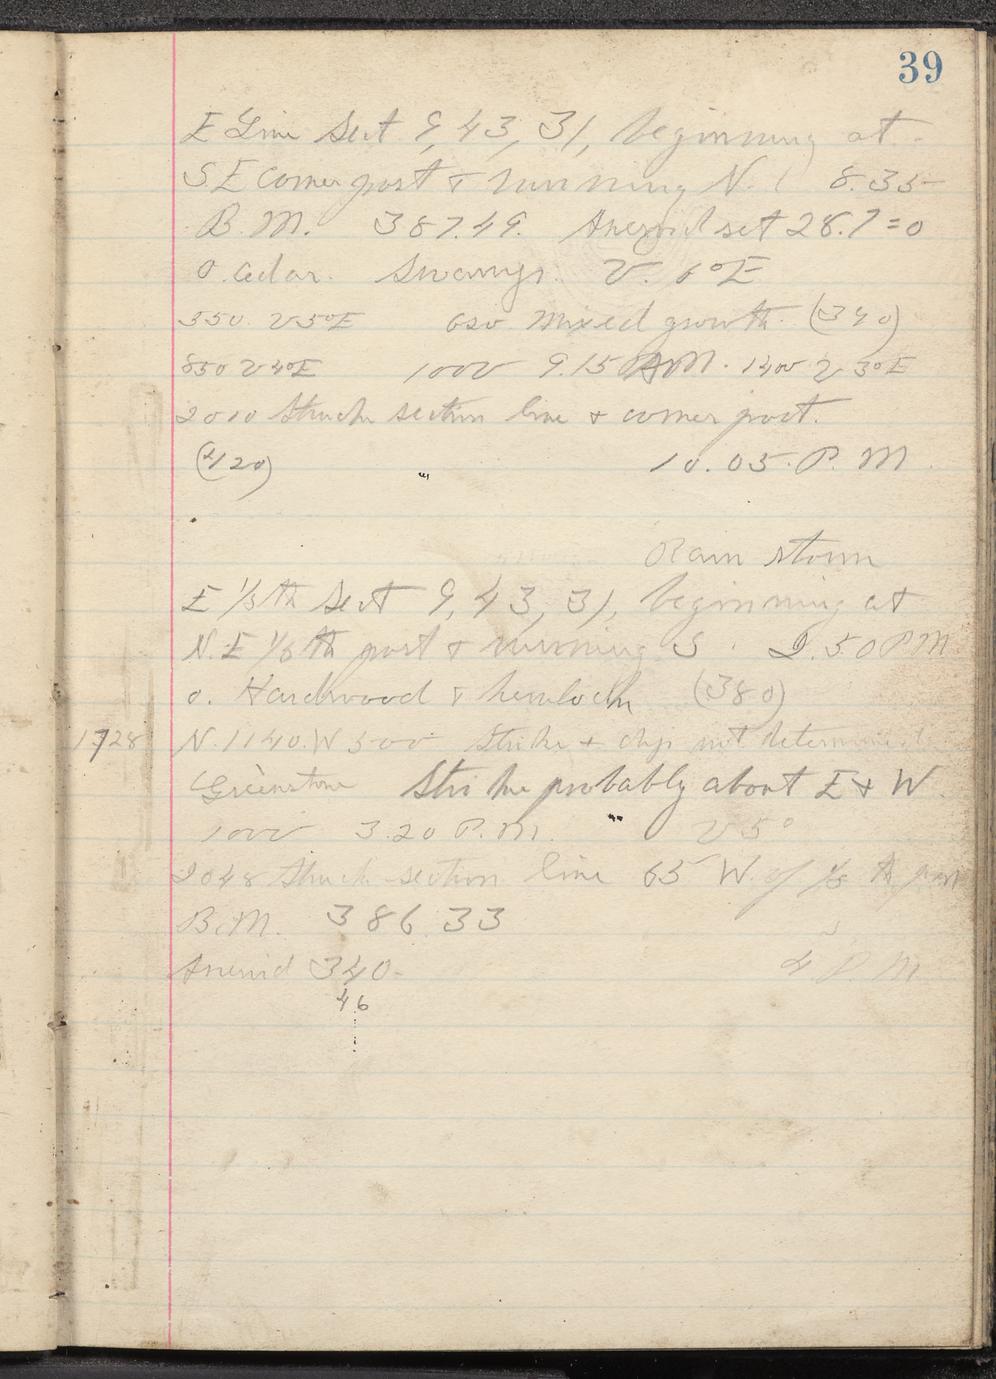 39
E Line Sect 9, 43, 31, beginning at
S.E corner post & running N. 8.35
B.M. 387.49. Aneroid set 28.7=0
0. Cedar. Swamp. V. 6°E
350. V5°E 620 mixed growth (340)
850 V4°E 1000 9.15 AM. 1400 V 3°E
2010 Struck section line & corner post.
(420) 10.05. P. M.
Rain storm
E 1/8th Sect 9, 43, 31, beginning at
N.E 1/8th post & running S. 2.50 PM
0. Hardwood & hemlock (380)
17728 N.1140.W 500 Strike & dip not determined
Greenstone Strike probably about E & W.
1000 3.20 P.M. V5°
2048 Struck section line 65 W. of 1/8 th post
B.M. 386 33
Aneroid 340- 4 P.M
46